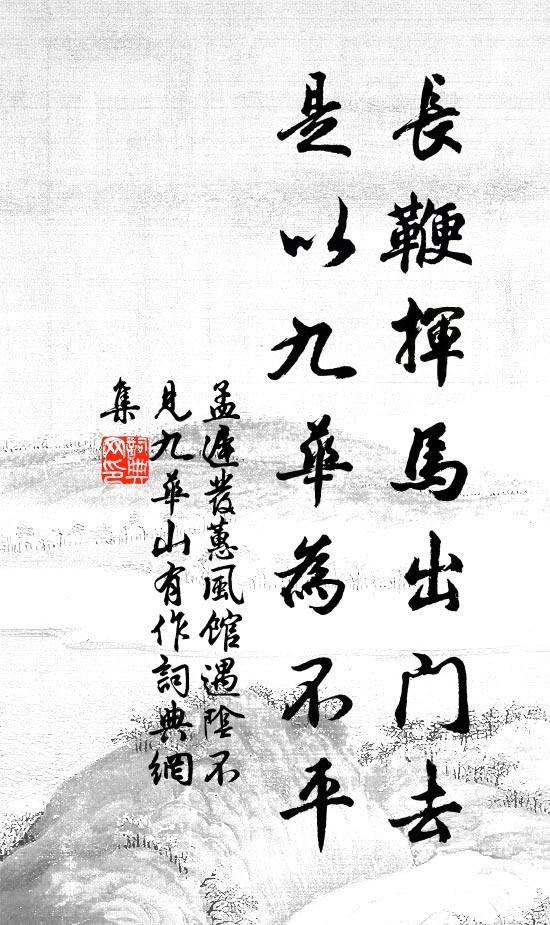 長鞭揮馬出門去
是以九華為不平
孟遲發蕙風館遇陰不
見九華山有作詞典網
集
詞典
网印